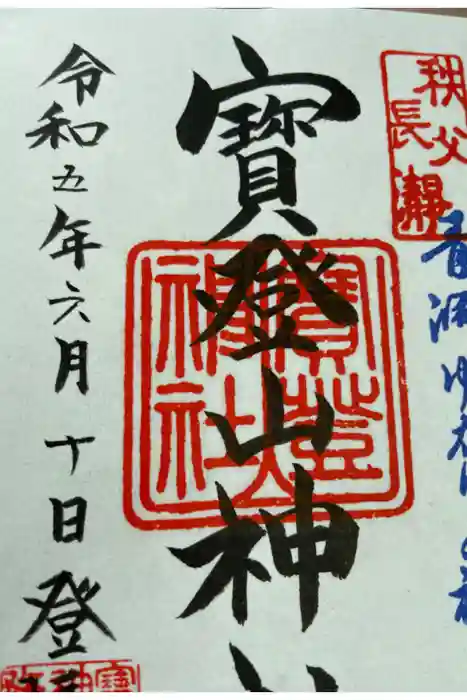 秩父
長瀞
寳登山神
寳登山
神社
令和五年六月十日
登